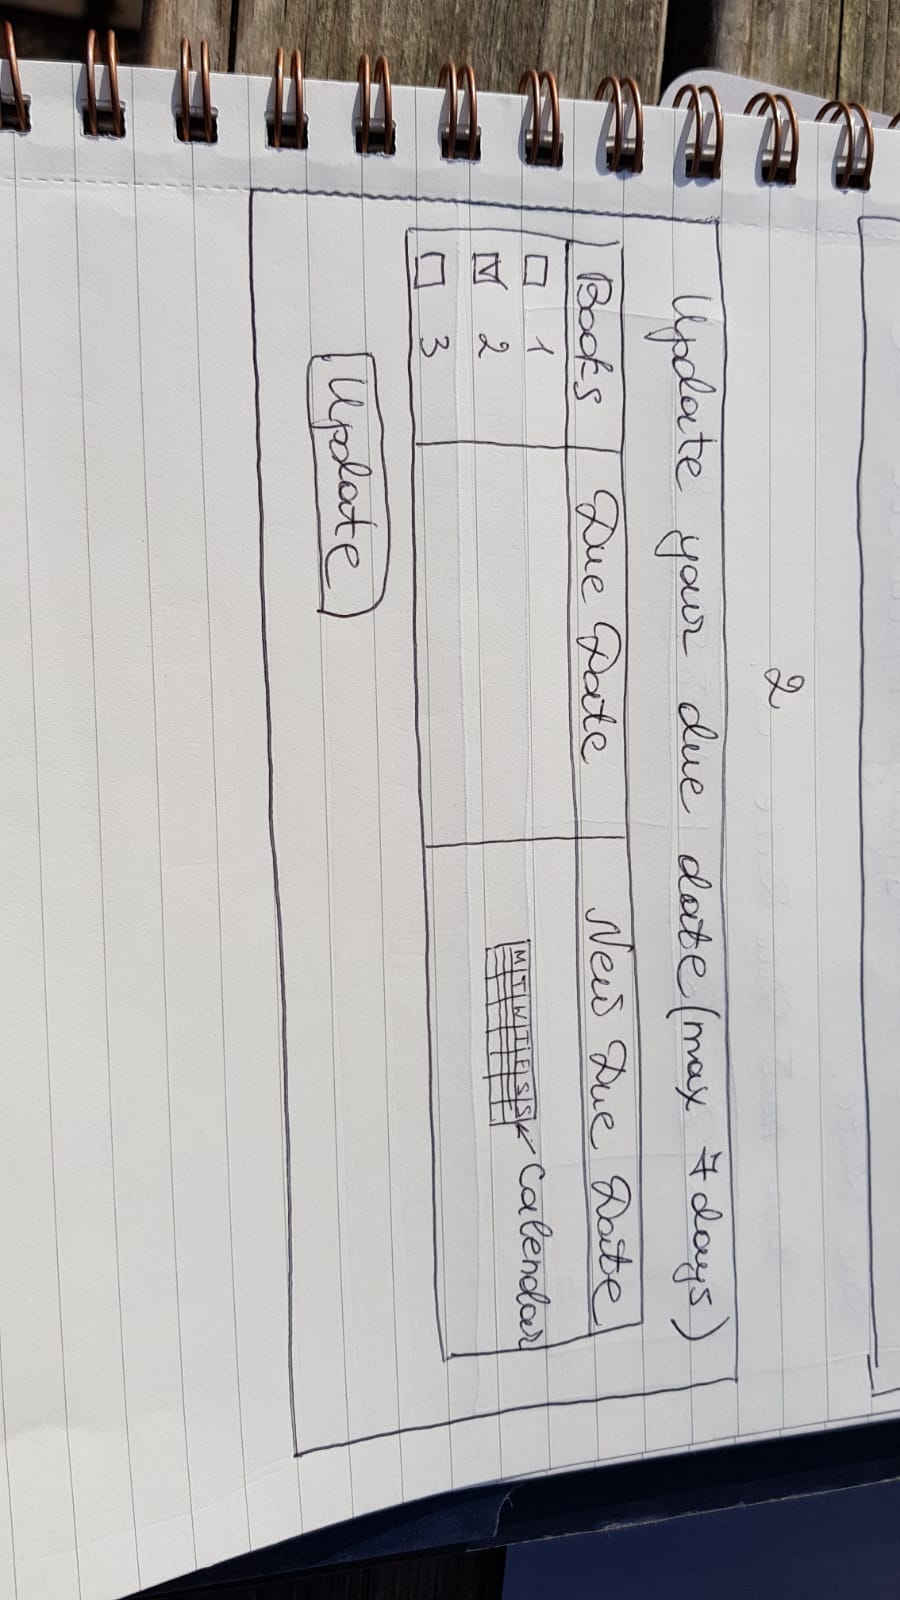 2
Update your due date (max 7 days)
Books Due Date New Due Date
1
2 M T W T F S S Calendar
3
Update